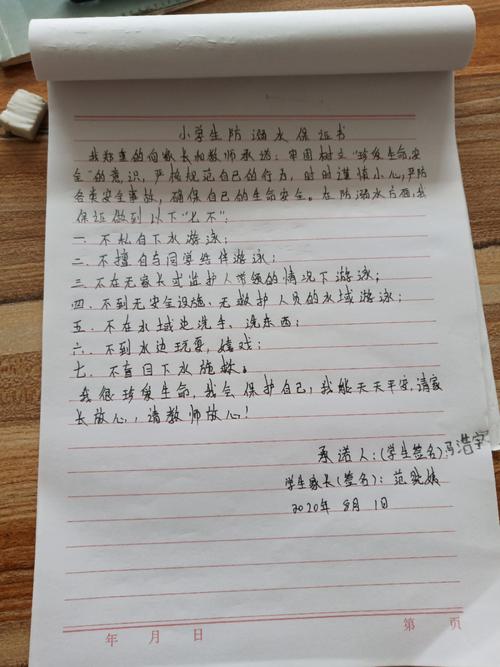 小学生防溺水保证书
我郑重的向家长和教师承诺：牢固树立"珍爱生命，安
全"的意识，严格规范自己的行为，时时谨慎小心，严防
各类安全事故，确保自己的生命安全。在防溺水方面，我
保证做到以下"七不"：
一、不私自下水游泳；
二、不擅自与同学结伴游泳；
三、不在无家长或监护人带领的情况下游泳；
四、不到无安全设施、无救护人员的水域游泳；
五、不在水域边洗手、洗东西；
六、不到水边玩耍、嬉戏；
七、不盲目下水施救。
我很珍爱生命，我会保护自己，我能天天平安，请家
长放心，请教师放心！
承诺人：(学生签名)冯浩宇
学生家长(签名)：范
2020年 8月 1日
年 月 日
第 页